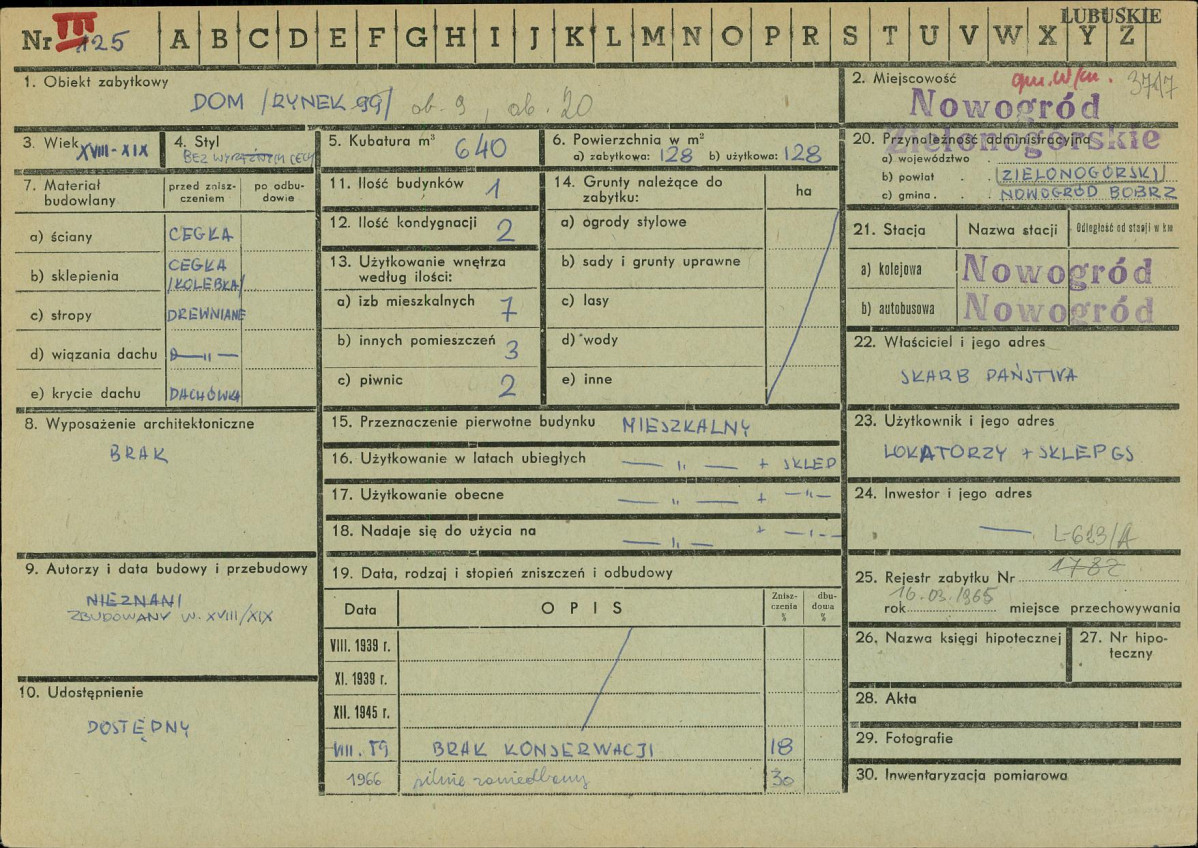 LUBUSKIE
Nr III 125 A B C D E F G H I J K L M N O P R S T U V W X Y Z
1. Obiekt zabytkowy
DOM /RYNEK 99/ ob. 9, ob. 20
2. Miejscowość gm. W/m. 3717
Nowogród
Zielonogórskie
3. Wiek XVIII-XIX
4. Styl
BEZ WYRAŹNYCH CECH
5. Kubatura m³ 640
6. Powierzchnia w m²
a) zabytkowa: 128 b) użytkowa: 128
7. Materiał budowlany
przed zniszczeniem
po odbudowie
a) ściany CEGŁA
b) sklepienia CEGŁA /KOLEBKA/
c) stropy DREWNIANE
d) wiązania dachu — " —
e) krycie dachu DACHÓWKA
8. Wyposażenie architektoniczne
BRAK
9. Autorzy i data budowy i przebudowy
NIEZNANI
ZBUDOWANY W. XVIII/XIX
10. Udostępnienie
DOSTĘPNY
11. Ilość budynków 1
12. Ilość kondygnacji 2
13. Użytkowanie wnętrza
według ilości:
a) izb mieszkalnych 7
b) innych pomieszczeń 3
c) piwnic 2
14. Grunty należące do
zabytku: ha
a) ogrody stylowe
b) sady i grunty uprawne
c) lasy
d) wody
e) inne
15. Przeznaczenie pierwotne budynku MIESZKALNY
16. Użytkowanie w latach ubiegłych — " — + SKLEP
17. Użytkowanie obecne — " — + — " —
18. Nadaje się do użycia na — " — + — " —
19. Data, rodzaj i stopień zniszczeń i odbudowy
Data OPIS Zniszczenia % dbudowa %
VIII. 1939 r.
XI. 1939 r.
XII. 1945 r.
VIII. 59 BRAK KONSERWACJI 18
1966 silnie zaniedbany 30
20. Przynależność administracyjna
a) województwo
b) powiat (ZIELONOGÓRSKI)
c) gmina NOWOGRÓD BOBRZ
21. Stacja Nazwa stacji Odległość od stacji w km
a) kolejowa Nowogród
b) autobusowa Nowogród
22. Właściciel i jego adres
SKARB PAŃSTWA
23. Użytkownik i jego adres
LOKATORZY + SKLEP GS
24. Inwestor i jego adres
—
L-613/A
25. Rejestr zabytku Nr 1782
16.03.1965
rok miejsce przechowywania
26. Nazwa księgi hipotecznej
27. Nr hipoteczny
28. Akta
29. Fotografie
30. Inwentaryzacja pomiarowa